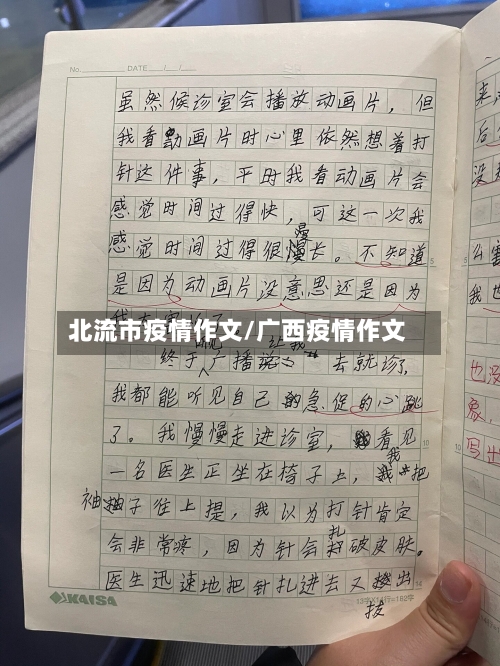 No. DATE / /
虽然候诊室会播放动画片，但
我看动画片时心里依然想着打
针这件事，平时我看动画片会
感觉时间过得快，可这一次我
感觉时间过得很漫长。不知道
是因为动画片没意思还是因为
北流市疫情作文/广西疫情作文
终于广播说 让我去就诊了
我都能听见自己的急促的心跳
了。我慢慢走进诊室，看见
一名医生正坐在椅子上，我把
袖子往上提，我以为打针肯定
会非常疼，因为针会扎破皮肤。
医生迅速地把针扎进去又拔出
KAISA
来
后
没
么
我
也没
象，
写出